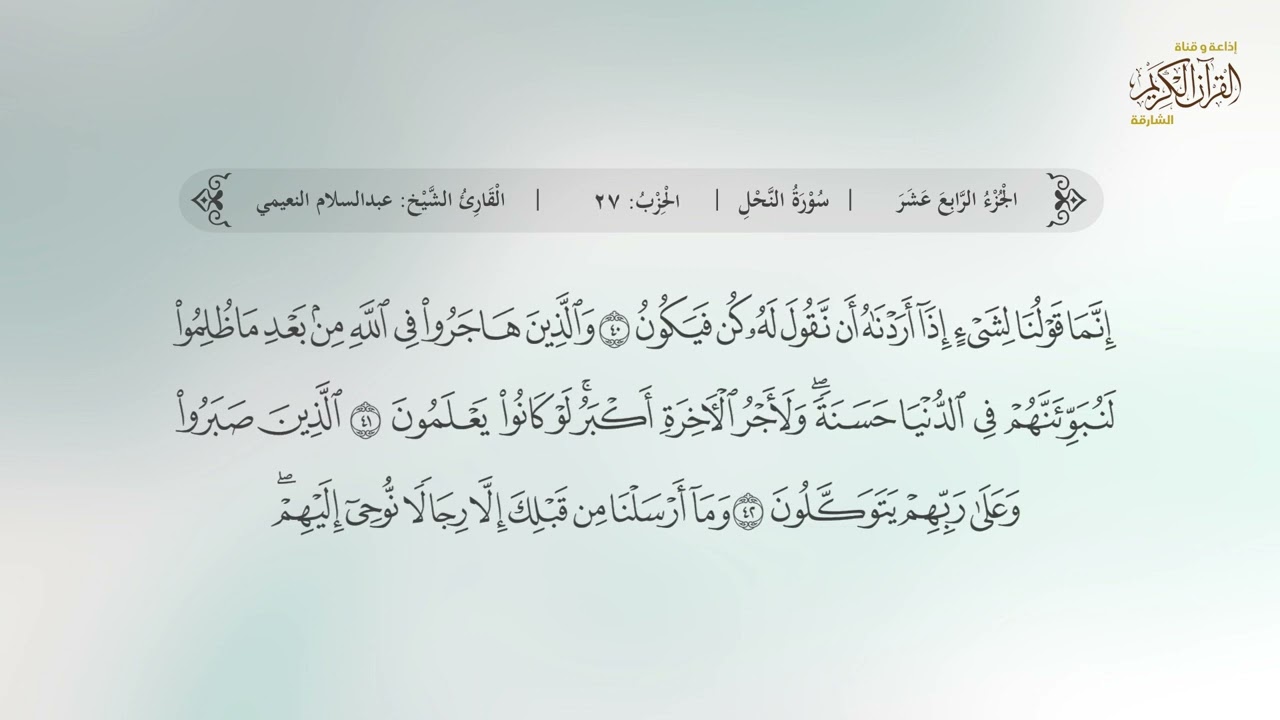 إذاعة و قناة
القرآن الكريم
الشارقة
الْجُزْءُ الرَّابِعَ عَشَرَ | سُوْرَةُ النَّحْلِ | الْحِزْبُ: ٢٧ | الْقَارِئُ الشَّيْخ: عبدالسلام النعيمي
إِنَّمَا قَوْلُنَا لِشَىْءٍ إِذَآ أَرَدْنَٰهُ أَن نَّقُولَ لَهُۥ كُن فَيَكُونُ ٤٠ وَٱلَّذِينَ هَاجَرُوا۟ فِى ٱللَّهِ مِنۢ بَعْدِ مَا ظُلِمُوا۟
لَنُبَوِّئَنَّهُمْ فِى ٱلدُّنْيَا حَسَنَةً ۖ وَلَأَجْرُ ٱلْـَٔاخِرَةِ أَكْبَرُ ۚ لَوْ كَانُوا۟ يَعْلَمُونَ ٤١ ٱلَّذِينَ صَبَرُوا۟
وَعَلَىٰ رَبِّهِمْ يَتَوَكَّلُونَ ٤٢ وَمَآ أَرْسَلْنَا مِن قَبْلِكَ إِلَّا رِجَالًا نُّوحِىٓ إِلَيْهِمْ ۖ